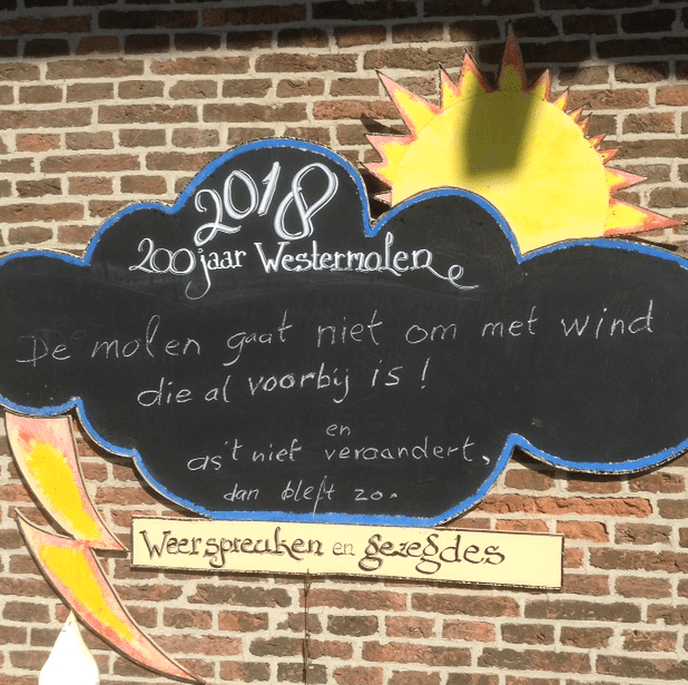 2018
200 jaar Westermolen
De molen gaat niet om met wind
die al voorbij is!
en
as 't niet veraandert,
dan bleft zo.
Weerspreuken en gezegdes